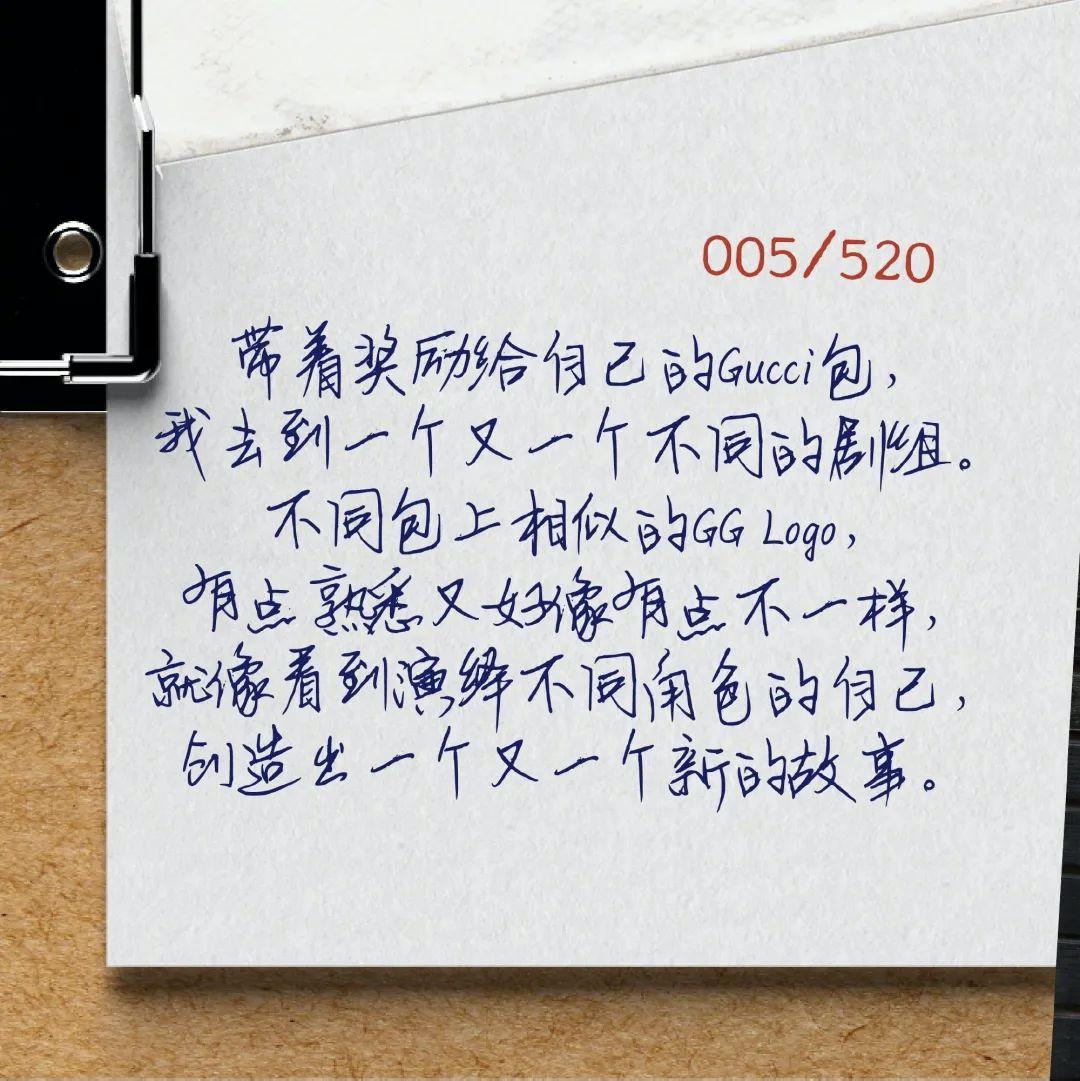 005/520
带着奖励给自己的Gucci包，
我去到一个又一个不同的剧组。
不同包上相似的GG Logo，
有点熟悉又好像有点不一样，
就像看到演绎不同角色的自己，
创造出一个又一个新的故事。